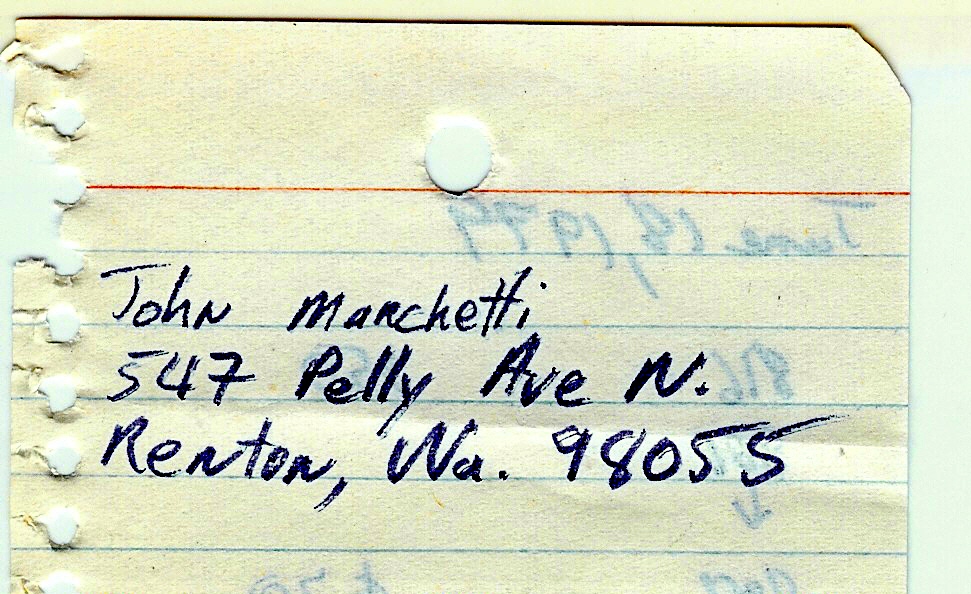 John Marchetti
547 Pelly Ave N.
Renton, Wa. 98055